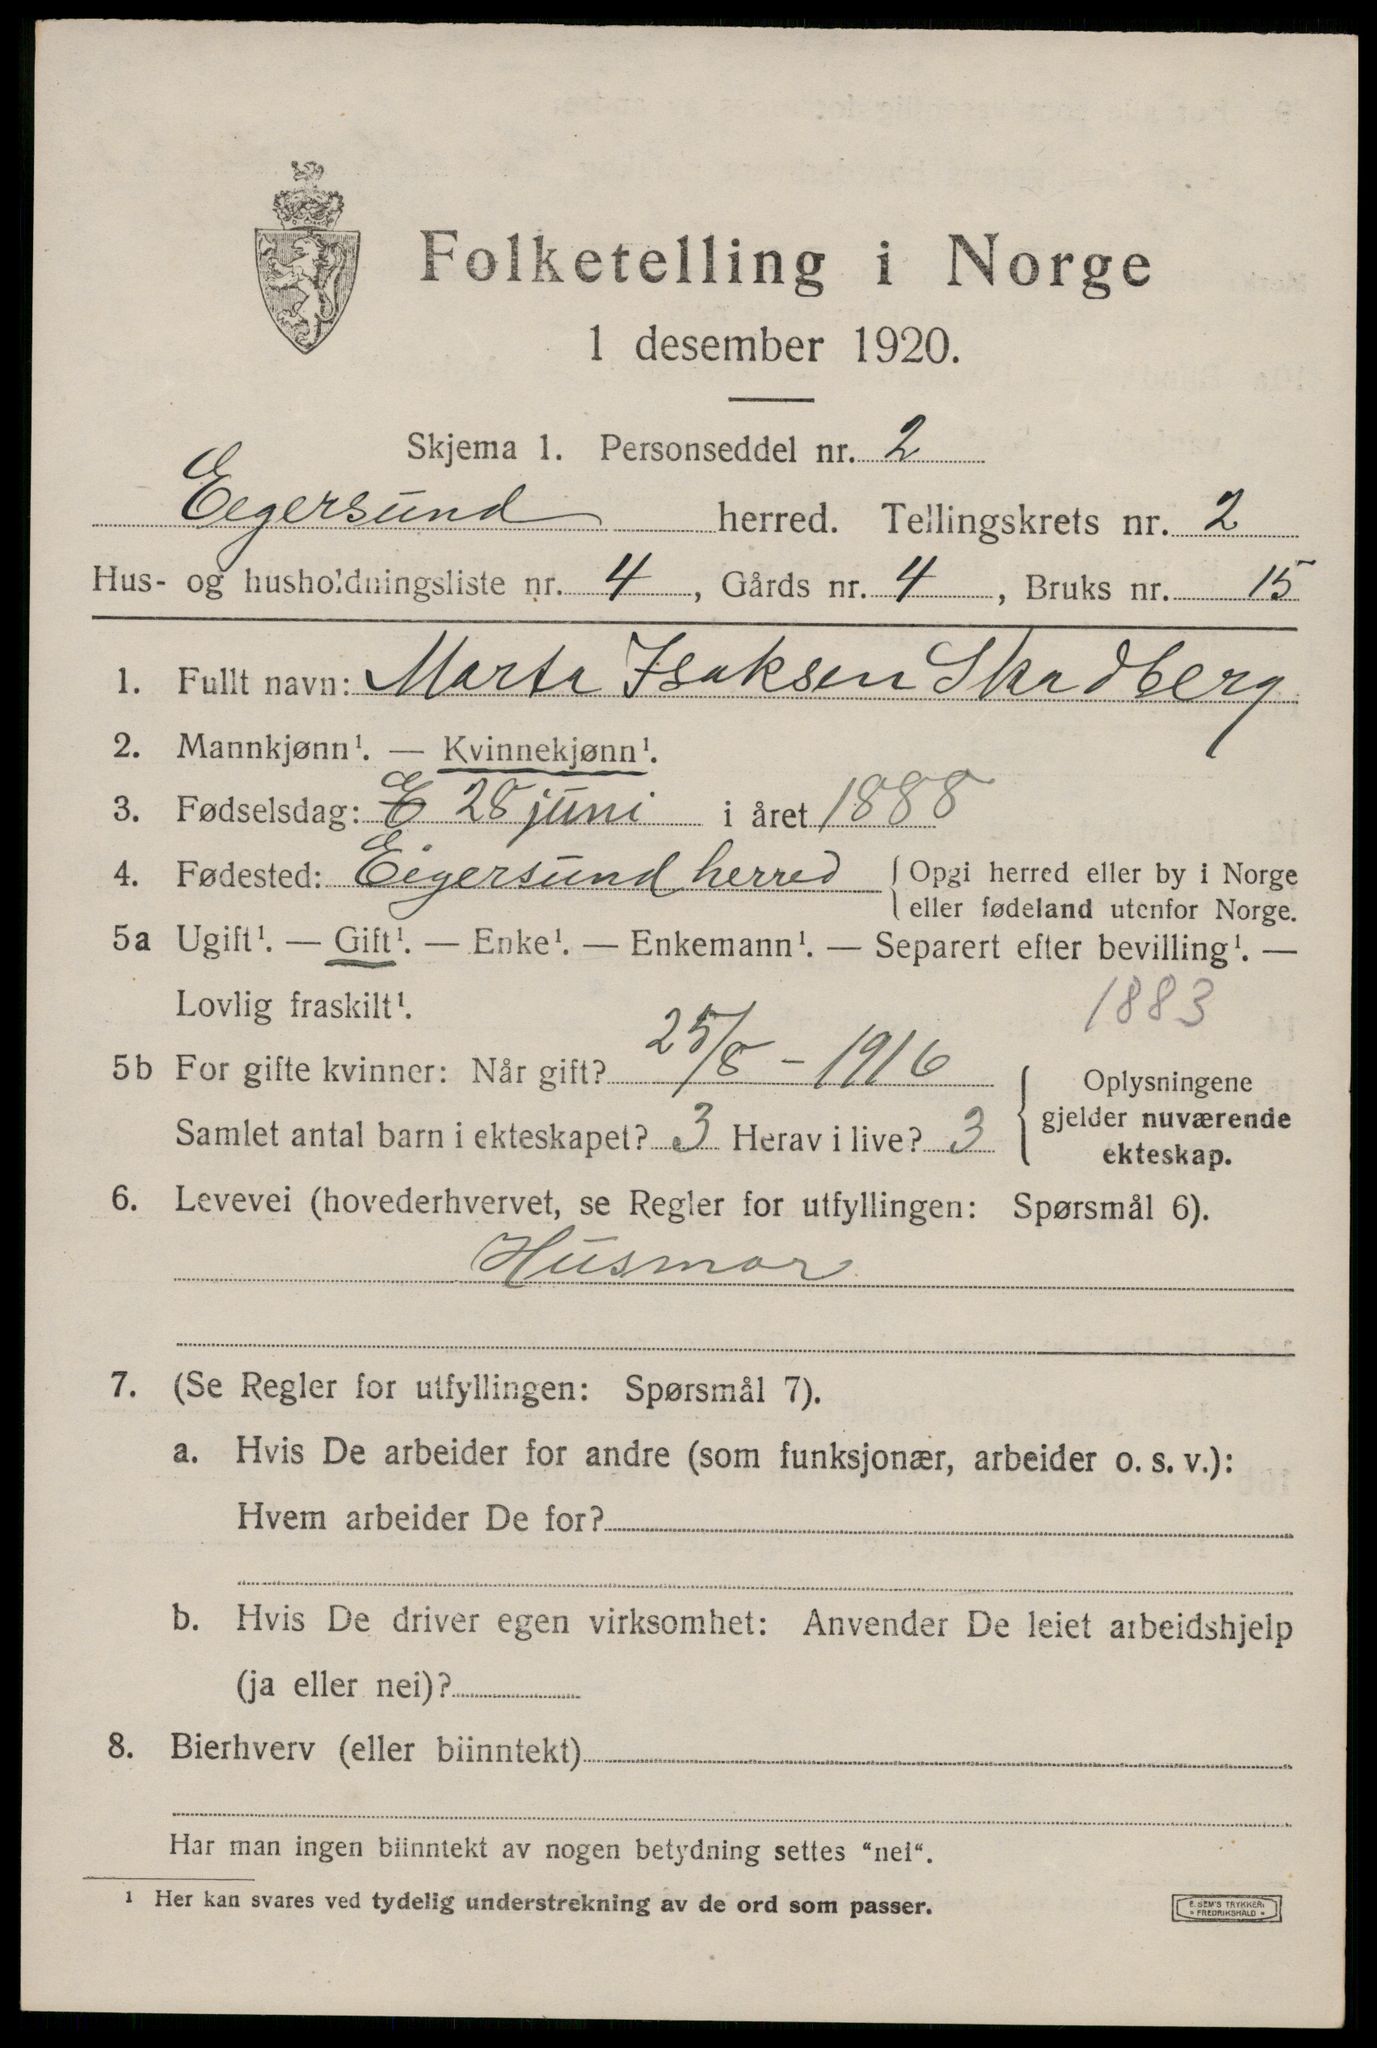 Folketelling i Norge
1 desember 1920.
Skjema 1. Personseddel nr. 2
Eigersund herred. Tellingskrets nr. 2
Hus- og husholdningsliste nr. 4, Gårds nr. 4, Bruks nr. 15
1. Fullt navn: Marta Isaksen Skadberg
2. Mannkjønn¹. — Kvinnekjønn¹.
3. Fødselsdag: E 28 juni i året 1888
4. Fødested: Eigersund herred { Opgi herred eller by i Norge
eller fødeland utenfor Norge.
5a Ugift¹. — Gift¹. — Enke¹. — Enkemann¹. — Separert efter bevilling¹. —
Lovlig fraskilt¹. 1883
5b For gifte kvinner: Når gift? 25/8 - 1916 { Oplysningene
gjelder nuværende
Samlet antal barn i ekteskapet? 3 Herav i live? 3 ekteskap.
6. Levevei (hovederhvervet, se Regler for utfyllingen: Spørsmål 6).
Husmor
7. (Se Regler for utfyllingen: Spørsmål 7).
a. Hvis De arbeider for andre (som funksjonær, arbeider o. s. v.):
Hvem arbeider De for?
b. Hvis De driver egen virksomhet: Anvender De leiet arbeidshjelp
(ja eller nei)?
8. Bierhverv (eller biinntekt)
Har man ingen biinntekt av nogen betydning settes “nei“.
¹ Her kan svares ved tydelig understrekning av de ord som passer.
E. SEM'S TRYKKERI
* FREDRIKSHALD *